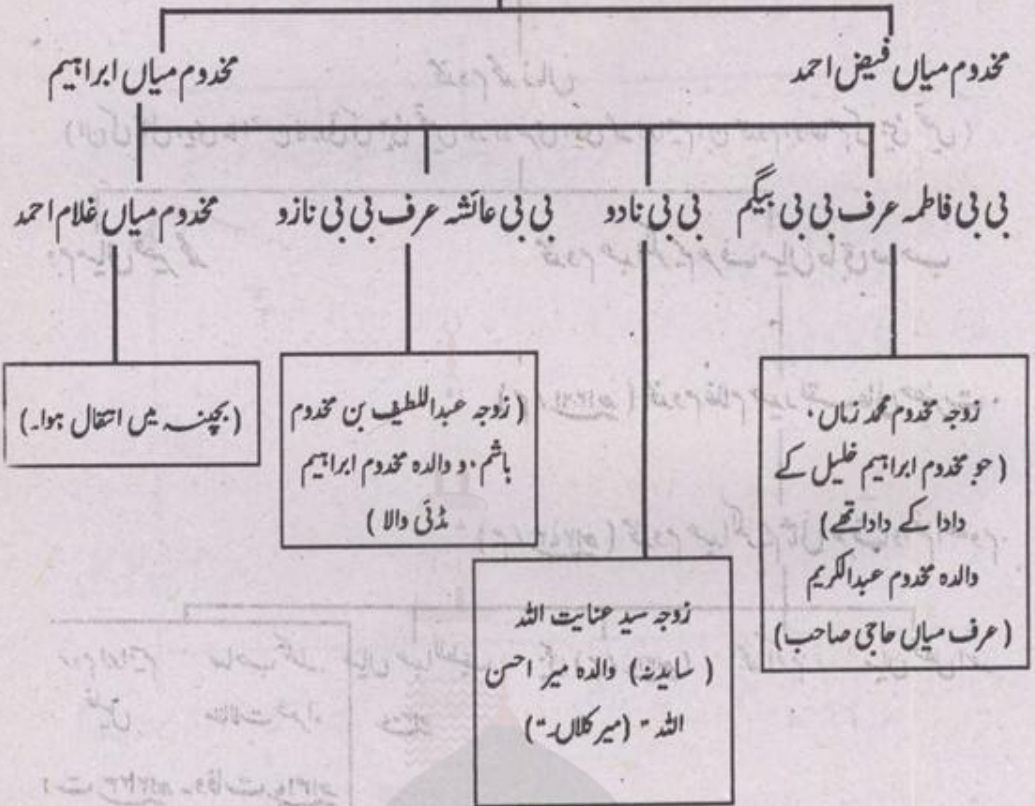 مخدوم میاں فیض احمد
مخدوم میاں ابراہیم
بی بی فاطمہ عرف بی بی بیگم
بی بی نادو
بی بی عائشہ عرف بی بی نازو
مخدوم میاں غلام احمد
زوجہ مخدوم محمد زماں۔
( جو مخدوم ابراہیم خلیل کے
دادا کے دادا تھے )
والدہ مخدوم عبدالکریم
(عرف میاں حاجی صاحب)
زوجہ سید عنایت اللہ
( سایدنہ ) والدہ میر احسن
اللہ " (میر کلاں۔")
( زوجہ عبداللطیف بن مخدوم
ہاشم۔ و والدہ مخدوم ابراہیم
مڈئی والا )
( بچپنہ میں انتقال ہوا۔)